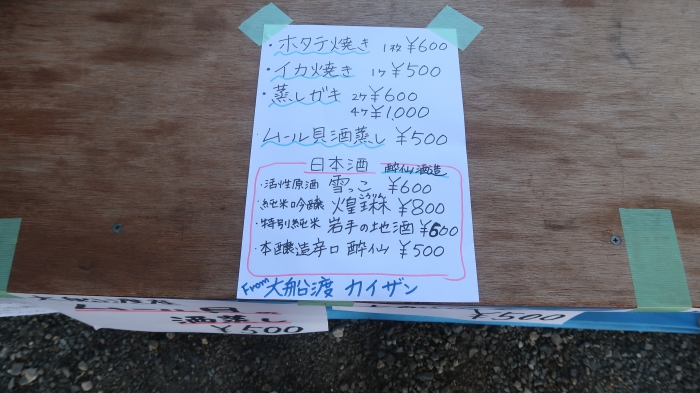 ・ホタテ焼き 1枚 ¥600
・イカ焼き 1ケ ¥500
・蒸しガキ 2ケ ¥600
4ケ ¥1,000
・ムール貝酒蒸し ¥500
日本酒 酔仙酒造
・活性原酒 雪っこ ¥600
こうりん
・純米吟醸 煌琳 ¥800
・特別純米 岩手の地酒 ¥600
・本醸造辛口 酔仙 ¥500
From 大船渡 カイザン
酒蒸し
¥500
¥500